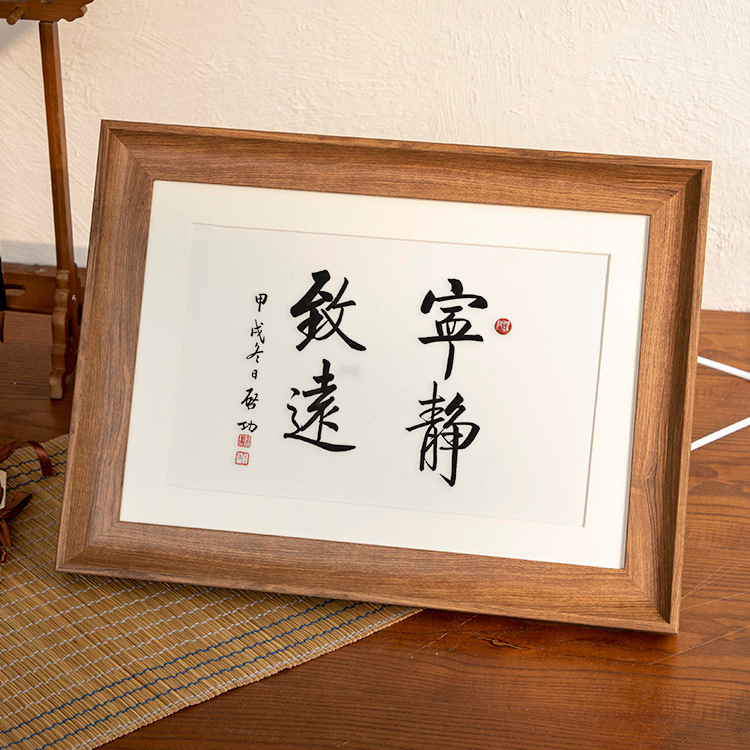 寧静
致遠
甲戌冬日啓功